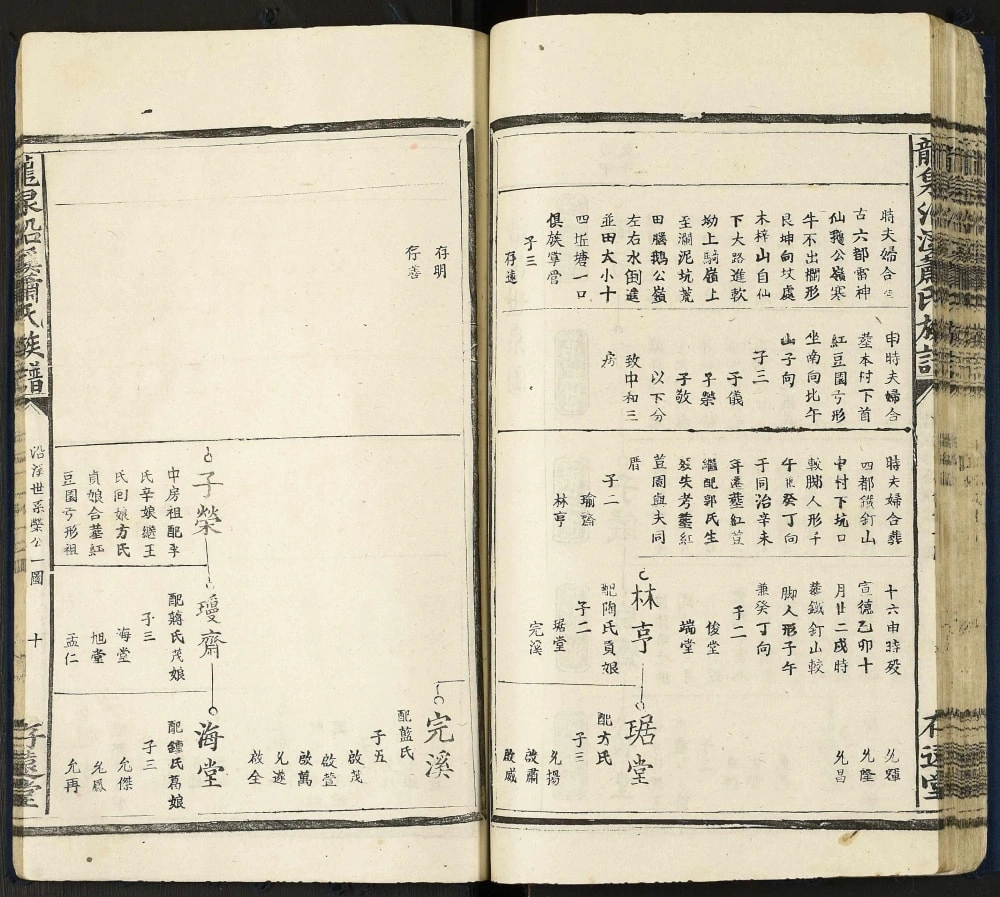 龍泉沿溪蕭氏族譜
存遠堂
時夫婦合
古六都雷神
仙鵝公嶺寒
牛不出欄形
艮坤向坟處
木梓山自仙
下大路進軟
坳上騎嶺上
至瀾泥坑荒
田腦鵝公嶺
左右水倒進
並田大小十
四坵塘一口
俱族掌管
子三
存遠
申時夫婦合
塟本村下首
紅豆園亏形
坐南向北午
山子向
子三
子儀
子榮
子敬
以下分
致中和三
房
時夫婦合葬
四都鐵釘山
中村下坑口
較脚人形千
午癸丁向
于同治辛未
年遷塟紅荳
繼配郭氏生
歿失考塟紅
荳園與夫同
厝
子二
瑜齋
林亨
十六申時歿
宣德乙卯十
月廿二戌時
葬鐵釘山較
脚人形子午
兼癸丁向
子二
俊堂
端堂
林亨
配陶氏貢娘
子二
琚堂
完溪
允隆
允昌
琚堂
配方氏
子三
允揚
啟肅
啟威
存明
存善
完溪
配藍氏
子五
啟茂
啟萱
啟萬
允遂
啟全
子榮
中房祖配李
氏辛娘繼王
氏回娘方氏
貞娘合塟紅
豆園亏形祖
瓊齋
配蔣氏茂娘
子三
海堂
旭堂
孟仁
海堂
配鍾氏葛娘
子三
允傑
允鳳
允再
龍泉沿溪蕭氏族譜
沿溪世系榮公一圖
十
存遠堂